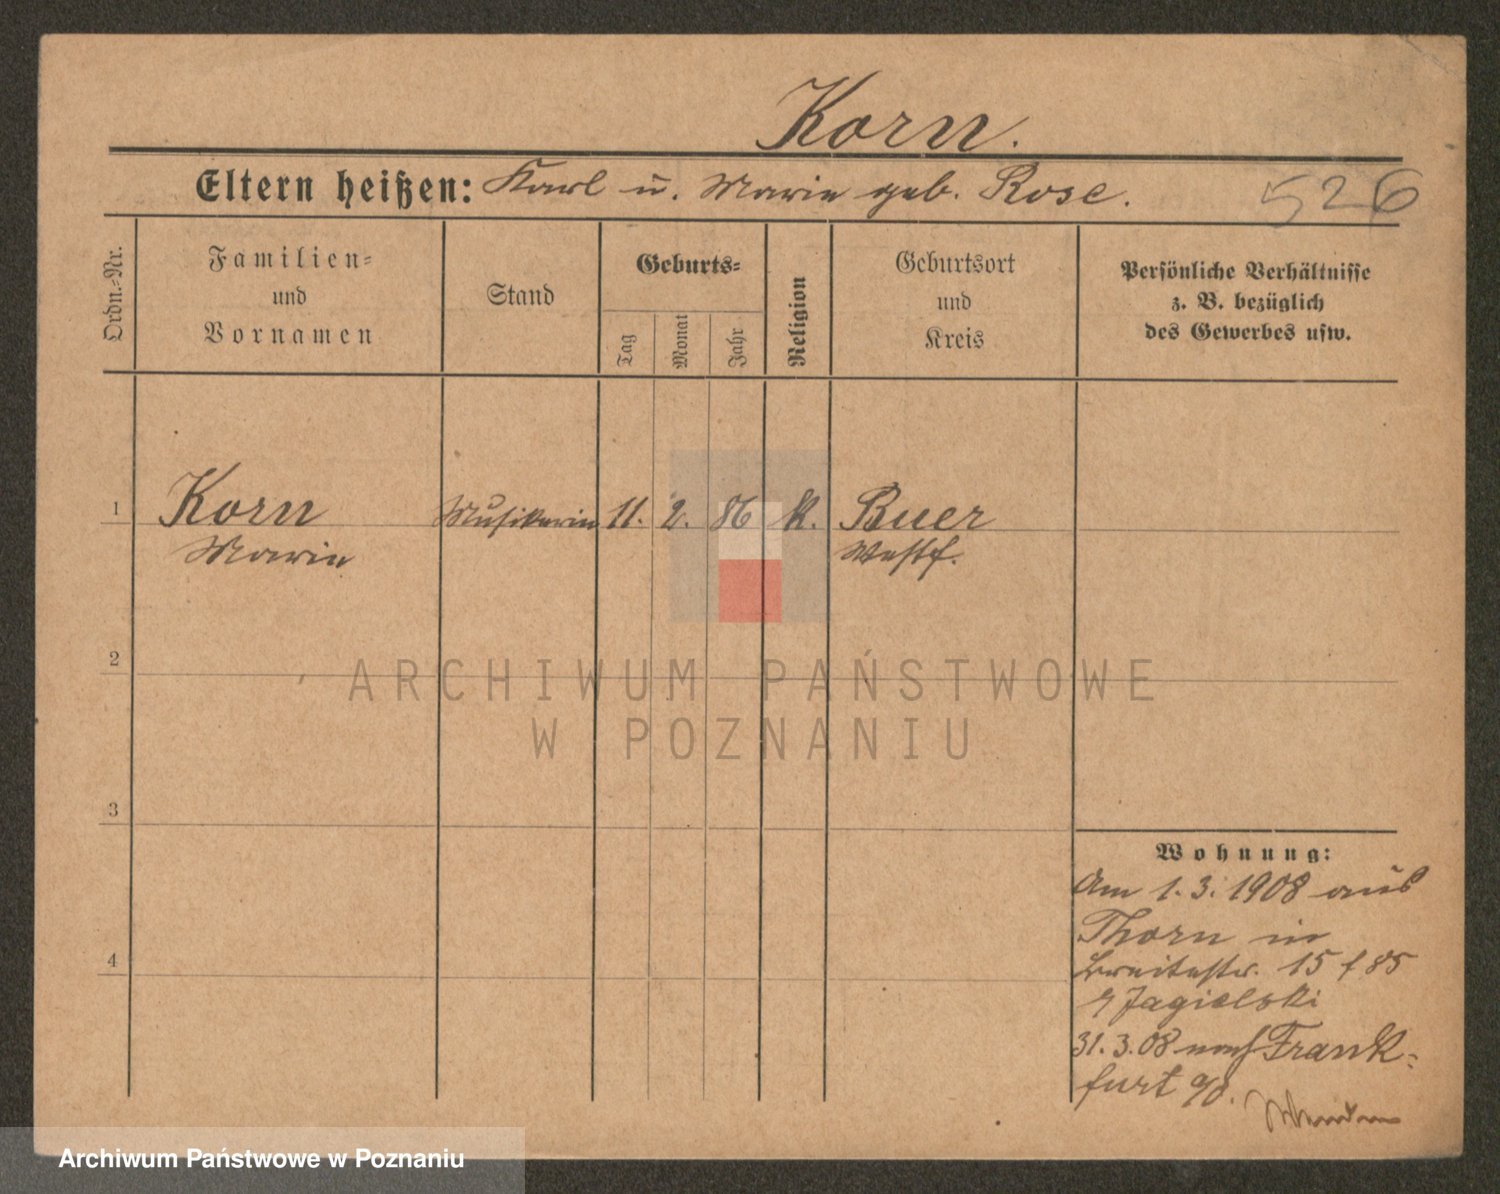 Korn.
Eltern heißen: Karl u. Marie geb. Rose.
526
Ordn.-Nr.
Familien-
und
Vornamen
Stand
Geburts-
Tag
Monat
Jahr
Religion
Geburtsort
und
Kreis
Persönliche Verhältnisse
z. B. bezüglich
des Gewerbes usw.
1 Korn Musikerin 11. 2. 86 k. Buer
Marie Westf.
2
ARCHIWUM PAŃSTWOWE
W POZNANIU
3
Wohnung:
Am 1.3.1908 aus
Thorn in
Breitestr. 15 f 85
Jagielski
4
31.3.08 nach Frank-
furt a/O.
Archiwum Państwowe w Poznaniu